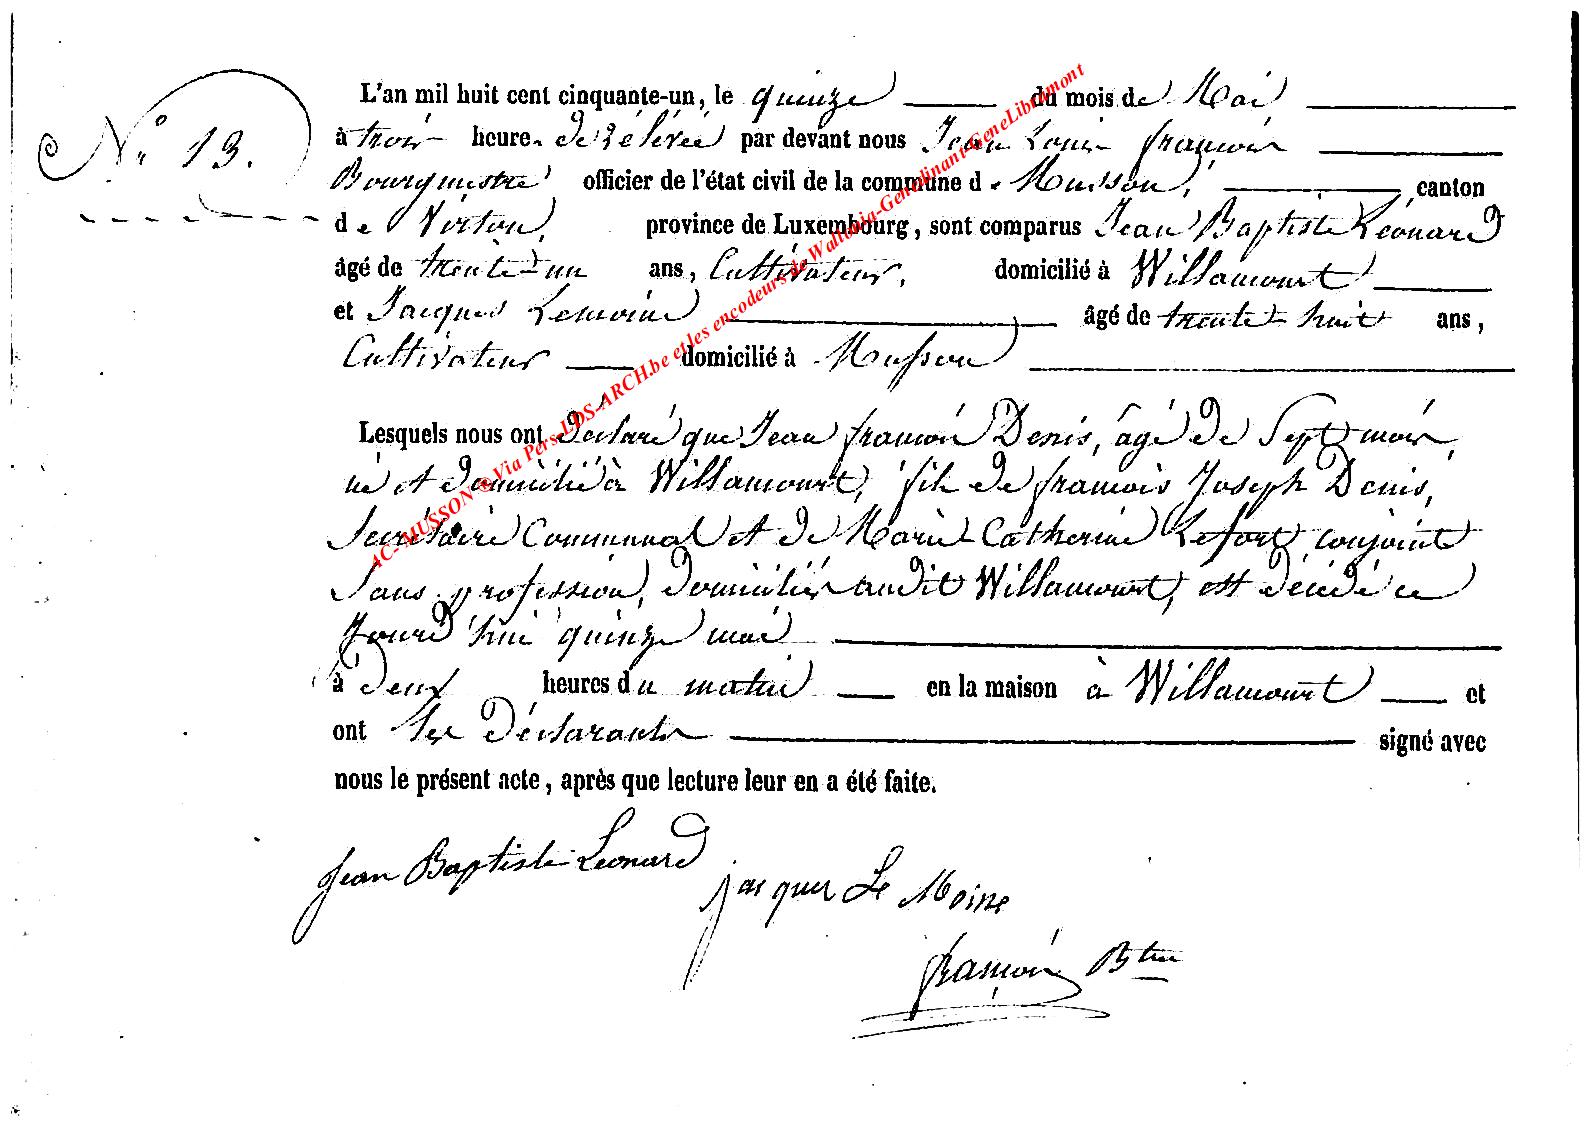 N° 13.
L'an mil huit cent cinquante-un, le quinze du mois de Mai
à trois heure. de rélévée par devant nous Jean Louis françois
Bourgmestre officier de l'état civil de la commune de Musson, canton
de Virton, province de Luxembourg, sont comparus Jean Baptiste Léonard
âgé de trente-un ans, Cultivateur, domicilié à Willancourt
et Jacques Lemoine âgé de trente-huit ans,
Cultivateur domicilié à Musson
Lesquels nous ont déclaré que Jean françois Denis, âgé de Sept mois,
né et domicilié à Willancourt, fils de françois Joseph Denis,
Secrétaire Communal et de Marie Catherine Lefort, conjoints
Sans profession, domiciliés audit Willancourt, est décédé ce
Jourd'hui quinze mai
à deux heures du matin en la maison à Willancourt et
ont les Déclarants signé avec
nous le présent acte, après que lecture leur en a été faite.
Jean Baptiste Leonard
jacques Le Moine
françois Btre
AC-MUSSON © Via Pers-LDS-ARCH.be et les encodeurs de Wallonia-Genealinant-GeneLibramont